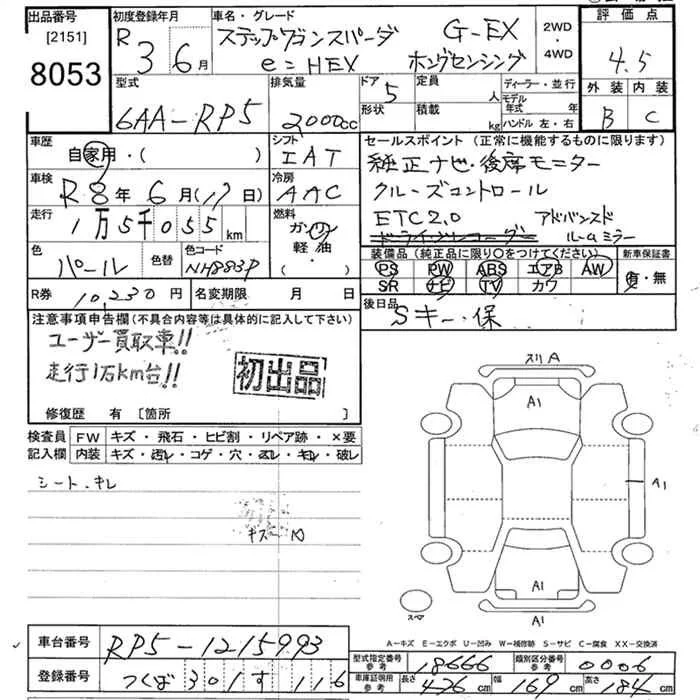 出品番号 初度登録年月 車名・グレード 評価点
[2151] R 3 6月 ステップワゴンスパーダ G-EX 2WD・4WD 4.5
8053 e=HEV ホンダセンシング 外装 内装
型式 排気量 ドア 5 定員 人 ディーラー・並行 B C
6AA-RP5 2000cc 形状 積載 kg モデル年式 年 ハンドル 左・右
車歴 自家用・( ) シフト IAT セールスポイント (正常に機能するものに限ります)
車検 R8年 6月(17日) 冷房 AAC 純正ナビ・後席モニター
クルーズコントロール
走行 1万5千055km 燃料 ガソリン 軽油 ・( ) ETC2.0 アドバンスド
ドライブレコーダー ルームミラー
色 パール 色替 色コード NH883P 装備品 (純正品に限り○をつけてください) 新車保証書
PS PW ABS エアB AW 有・無
SR ナビ TV カワ
R券 10,230円 名変期限 月 日 後日品
Sキー・保
注意事項申告欄 (不具合内容等は具体的に記入して下さい)
ユーザー買取車!!
走行1万km台!!
初出品
修復歴 有 [箇所 ]
検査員 FW キズ・飛石・ヒビ割・リペア跡・×要
記入欄 内装 キズ・汚レ・コゲ・穴・スレ・キレ・破レ
シート、キレ
スリA
A1
A1
キズー内
A1
スペア
A1
A-キズ E-エクボ U-凹み W-補修跡 S-サビ C-腐食 XX-交換済
車台番号 RP5-1215993 型式指定番号 参考 18666 類別区分番号 参考 0006
登録番号 つくば 301す 116 車庫証明用 参考 長さ 476cm 幅 169cm 高さ 184cm